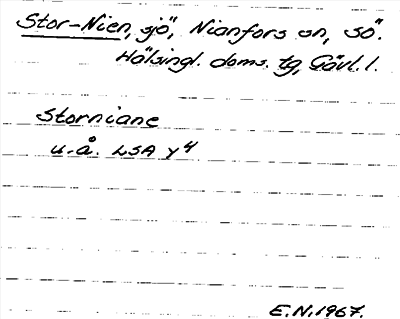 Stor-Nien, sjö, Nianfors sn, sö.
Hälsingl. doms. tg, Gävl. l.
Storniane
u.å. LSA y4
E.N. 1967.